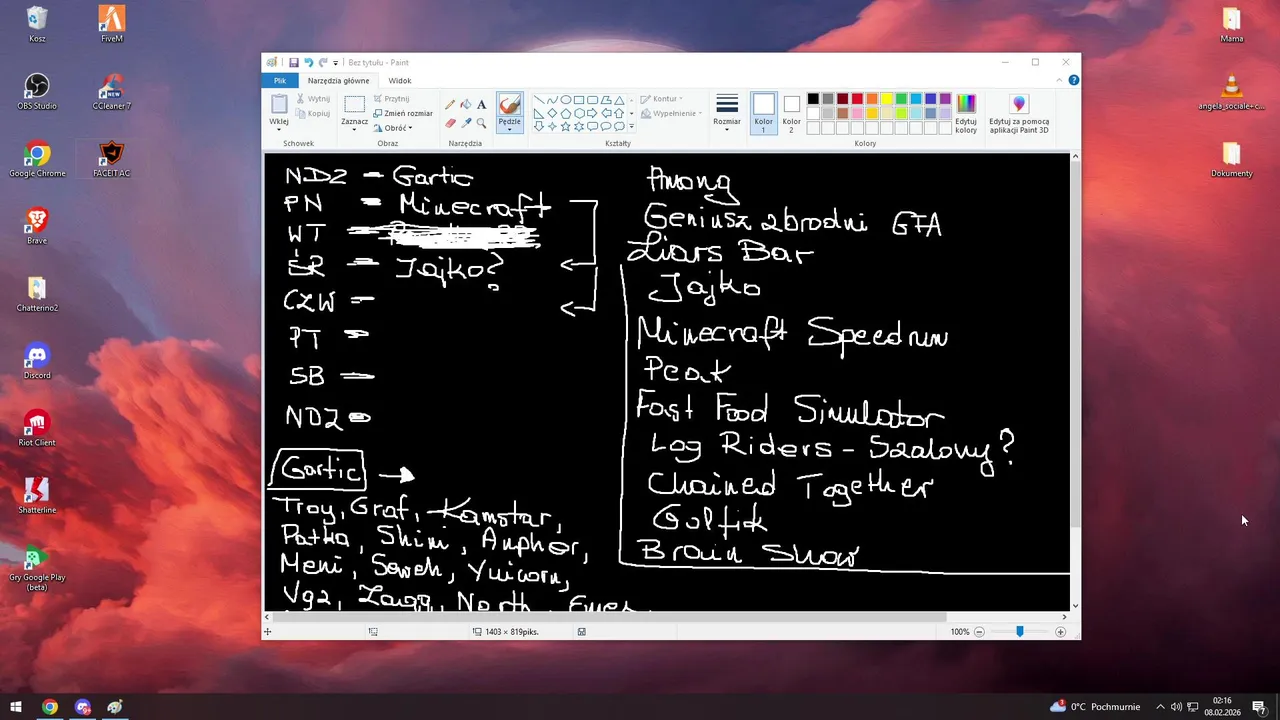 Kosz
FiveM
OBS Studio
CCleaner 7
NEW
Google Chrome
FACEIT AC
Brave
Chatterino2
Discord
Riot Client
Shatterline
Gry Google Play
(beta)
Mama
angela_sociale+c...
Dokumenty
Bez tytułu - Paint
Plik
Narzędzia główne
Widok
Wklej
Wytnij
Kopiuj
Schowek
Zaznacz
Przytnij
Zmień rozmiar
Obróć
Obraz
A
Narzędzia
Pędzle
Kontur
Wypełnienie
Kształty
Rozmiar
Kolor
1
Kolor
2
Edytuj
kolory
Edytuj za pomocą
aplikacji Paint 3D
Kolory
NDZ - Gartic
PN - Minecraft
WT -
ŚR - Jajko?
CZW -
PT -
SB -
NDZ -
Gartic →
Troy, Graf, Kamstar,
Patka, Shini, Anpher,
Meni, Seweh, Yuicorn,
Vgz, Zaqq, North,
Among
Geniusz zbrodni GTA
Liars Bar
Jajko
Minecraft Speedrun
Peak
Fast Food Simulator
Log Riders - Szalony?
Chained Together
Golfik
Brain Show
1403 × 819piks.
100%
0°C Pochmurnie
02:16
08.02.2026